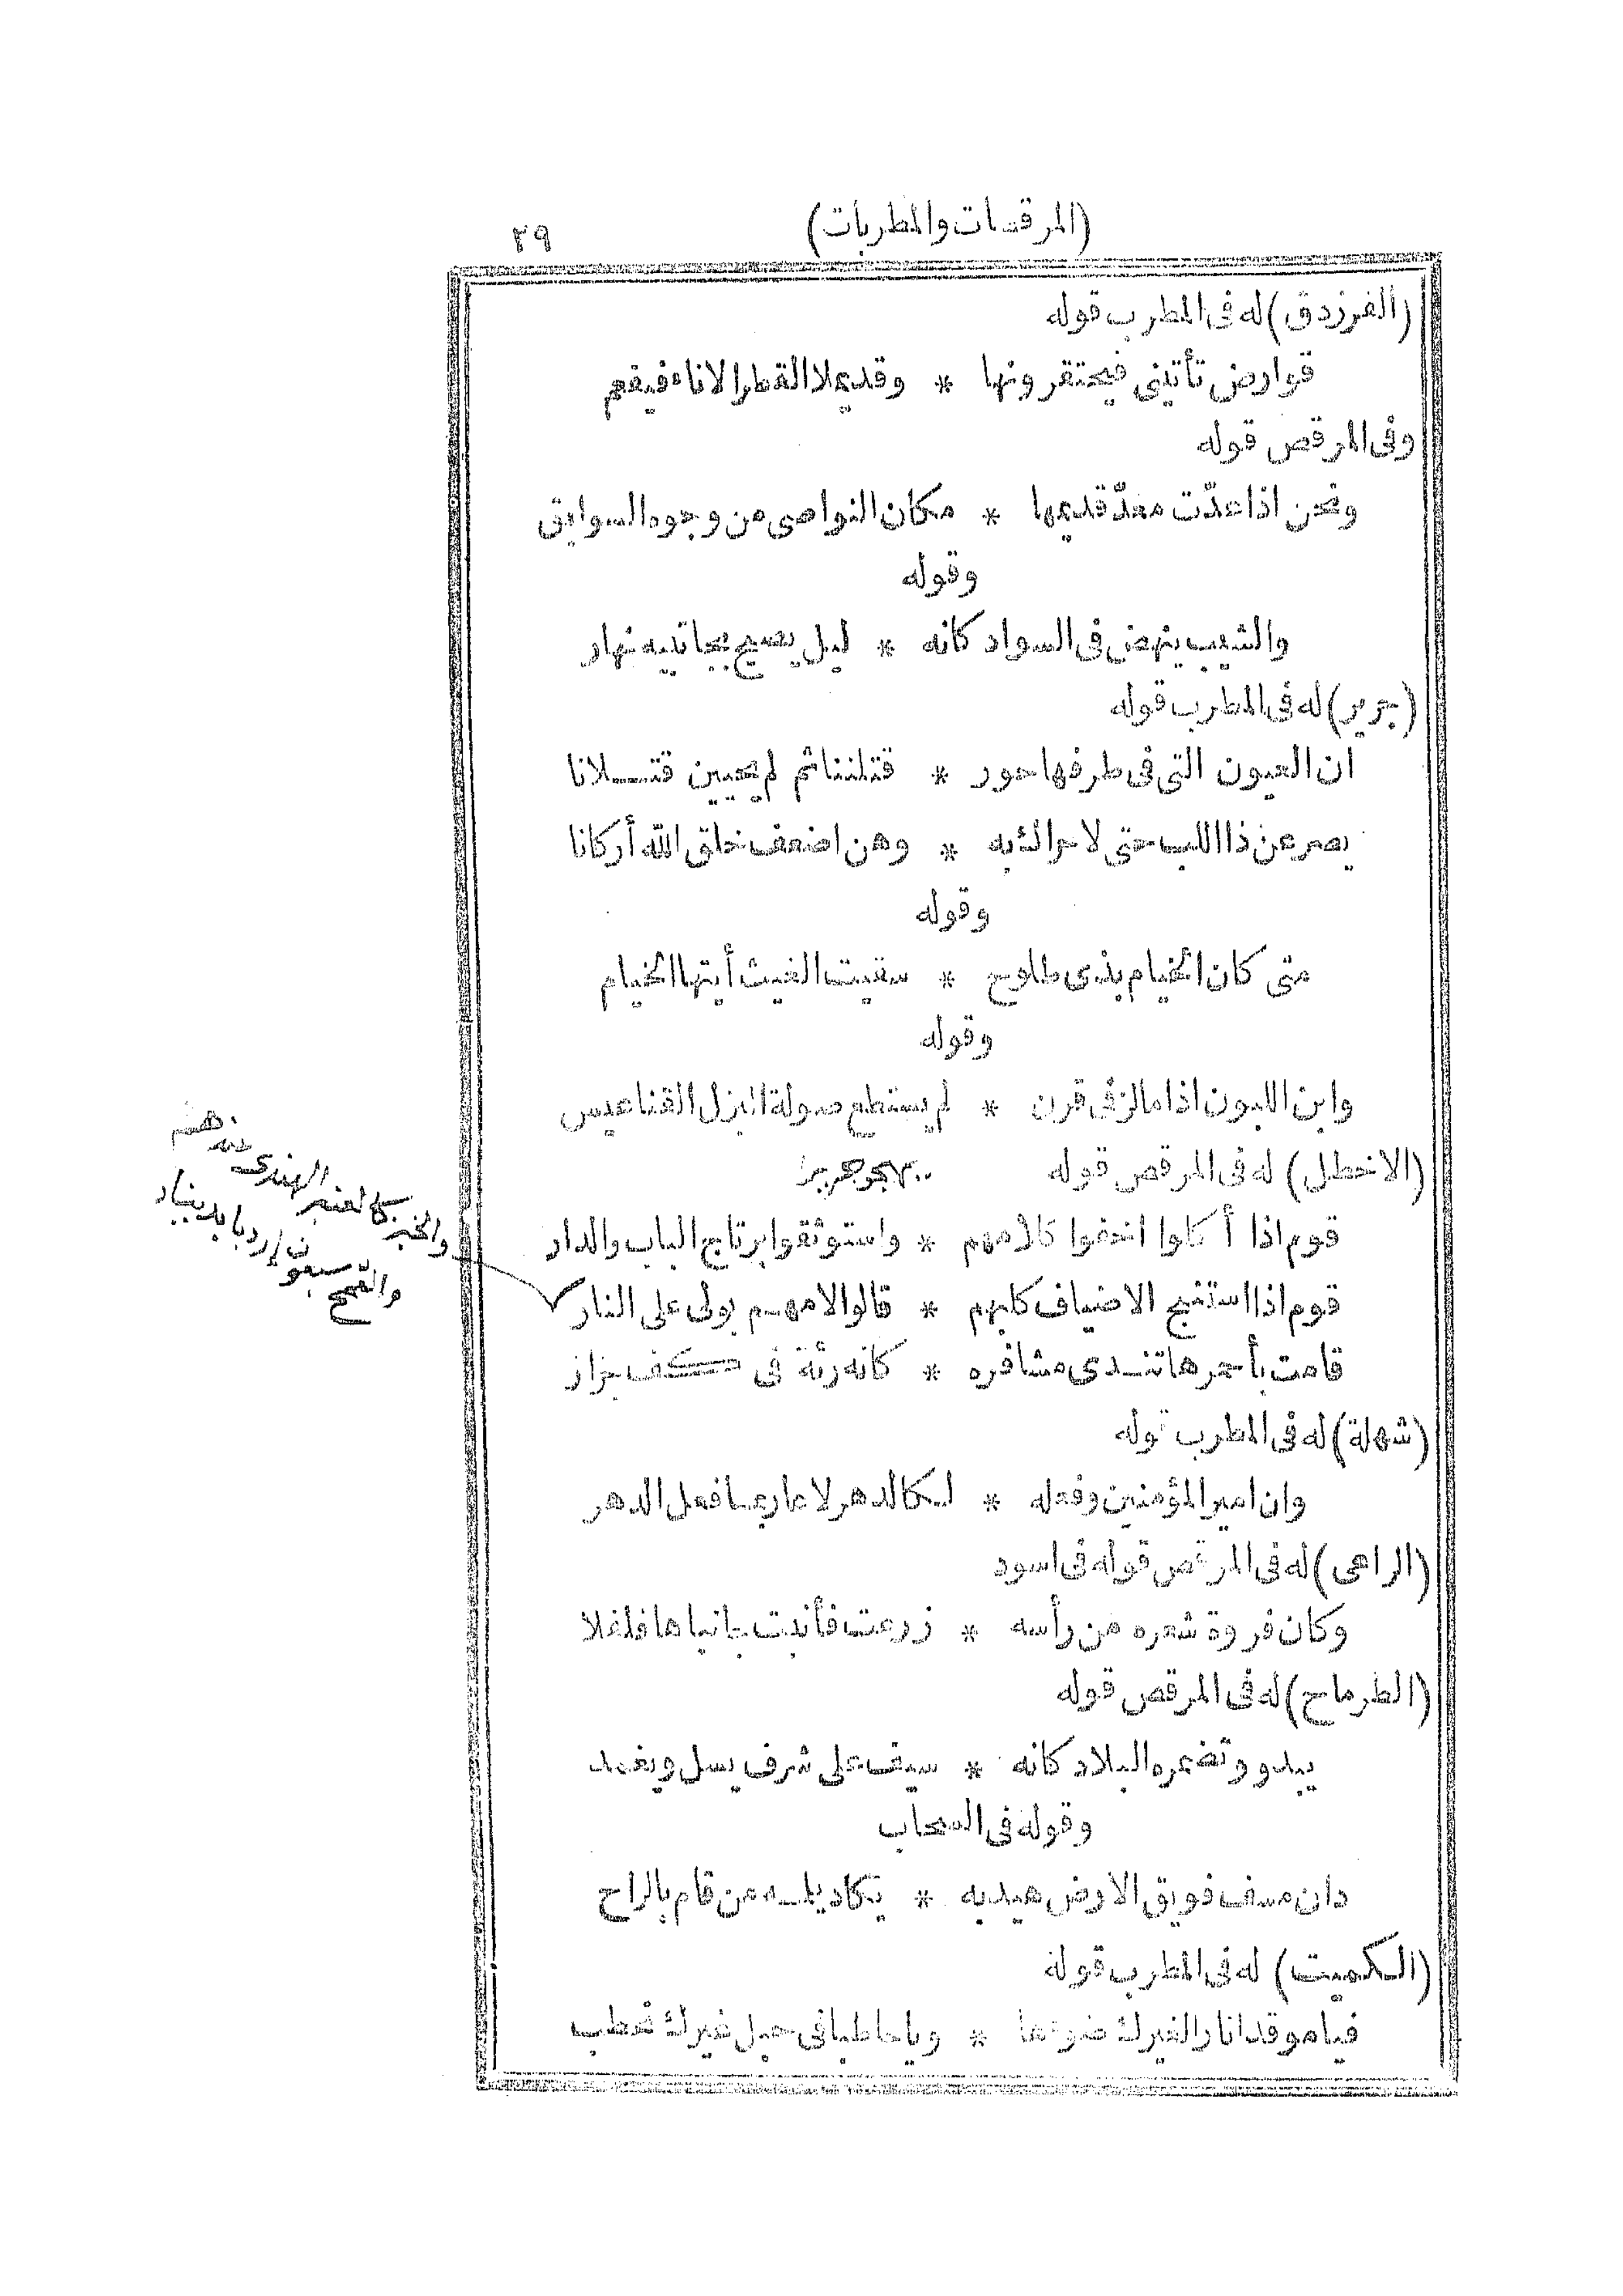 (المرقصات والمطربات) ٢٩
(الفرزدق) له فى المطرب قوله
قوارض تأتينى فيحتقرونها * وقد يملا القطر الاناء فيفعم
وفى المرقص قوله
ونحن اذا عدّت معدّ قديمها * مكان النواصى من وجوه السوابق
وقوله
والشيب ينهض فى السواد كانه * ليل يصيح بجانبيه نهار
(جرير) له فى المطرب قوله
ان العيون التى فى طرفها حور * قتلننا ثم لم يحيين قتـلانا
يصرعن ذا اللب حتى لا حراك به * وهن اضعف خلق الله أركانا
وقوله
متى كان الخيام بذى طلوح * سقيت الغيث أيتها الخيام
وقوله
وابن اللبون اذا مالز فى قرن * لم يستطع صولة البزل القناعيس
(الاخطل) له فى المرقص قوله يهجو جريرا
قوم اذا أكلوا اخفوا كلامهم * واستوثقوا برتاج الباب والدار
قوم اذا استنبح الاضياف كلبهم * قالوا لامهـم بولى على النار
والخبز كالعنبر الهندى عندهم
والقمح سبعون إردبا بدينار
قامت بأحمرها تنـدى مشافره * كانه رئة فى كف جزار
(شهلة) له فى المطرب قوله
وان امير المؤمنين وفعله * لكالدهر لا عار بما فعل الدهر
(الراعى) له فى المرقص قوله فى اسود
وكان فروة شعره من رأسه * زرعت فأنبت جانباها فلفلا
(الطرماح) له فى المرقص قوله
يبدو وتضمره البلاد كانه * سيف على شرف يسل ويغمد
وقوله فى السحاب
دان مسف فويق الارض هيدبه * يكاد يلمسه من قام بالراح
(الكميت) له فى المطرب قوله
فيا موقدا نارا لغيرك ضوءها * ويا حاطبا فى حبل غيرك تحطب